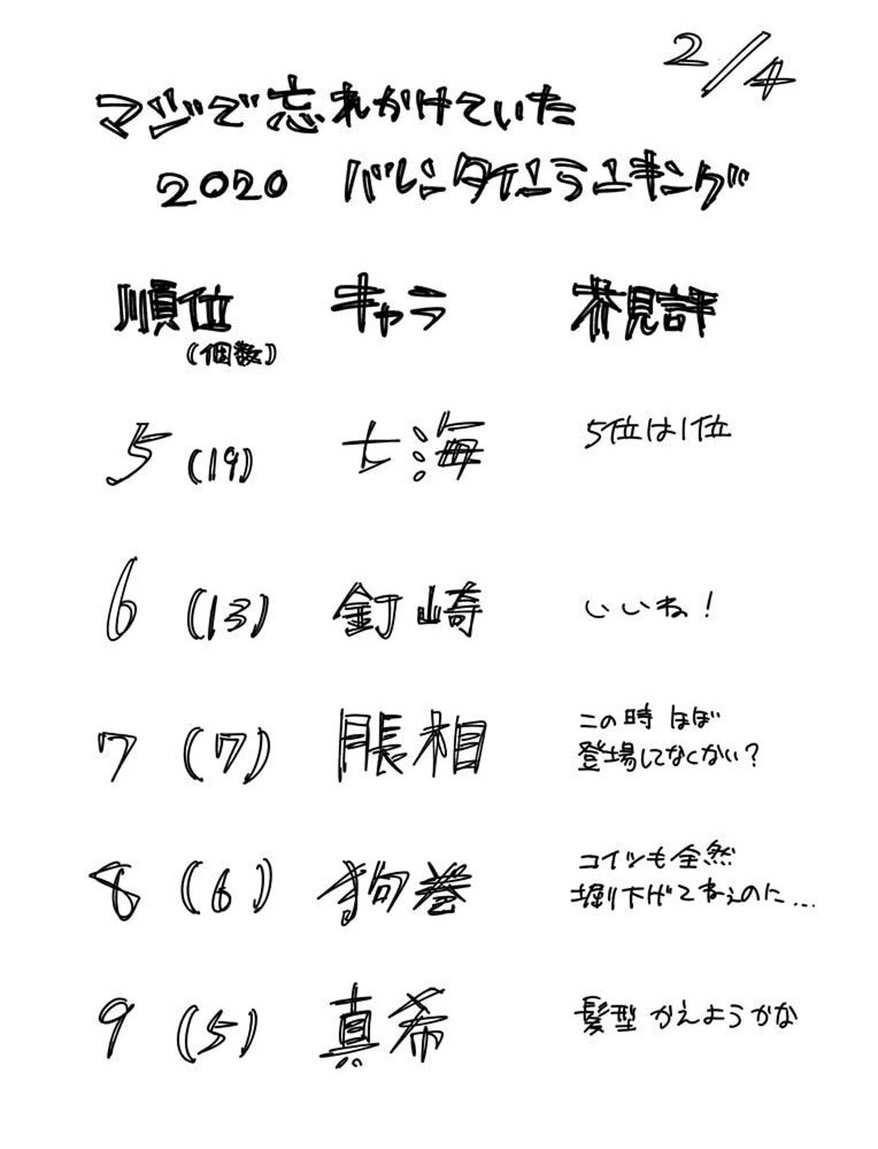 2/4
マジで忘れかけていた
2020 バレンタインランキング
順位 キャラ 芥見評
(個数)
5 (19) 七海 5位は1位
6 (13) 釘崎 いいね!
7 (7) 脹相 この時 ほぼ
登場してなくない?
8 (6) 狗巻 コイツも全然
堀り下げてねぇのに...
9 (5) 真希 髪型 かえようかな